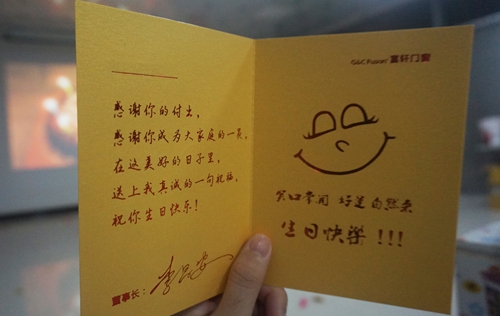 感谢你的付出，
感谢你成为大家庭的一员，
在这美好的日子里，
送上我真诚的一句祝福，
祝你生日快乐！
董事长：
富轩门窗
笑口常开 好运自然来
生日快樂!!!